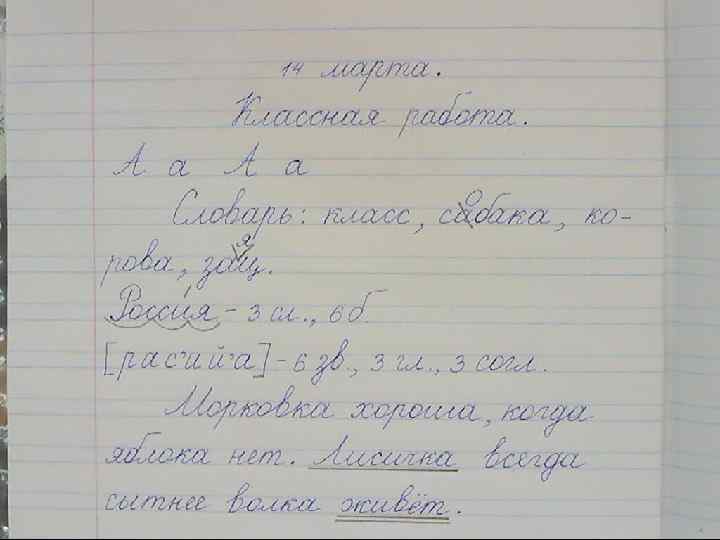 14 марта.
Классная работа.
А а А а
Словарь: класс, собака, ко-
рова, заяц.
Россия – 3 сл., 6 б.
[рас'ий'а] – 6 зв., 3 гл., 3 согл.
Морковка хороша, когда
яблока нет. Лисичка всегда
сытнее волка живёт.